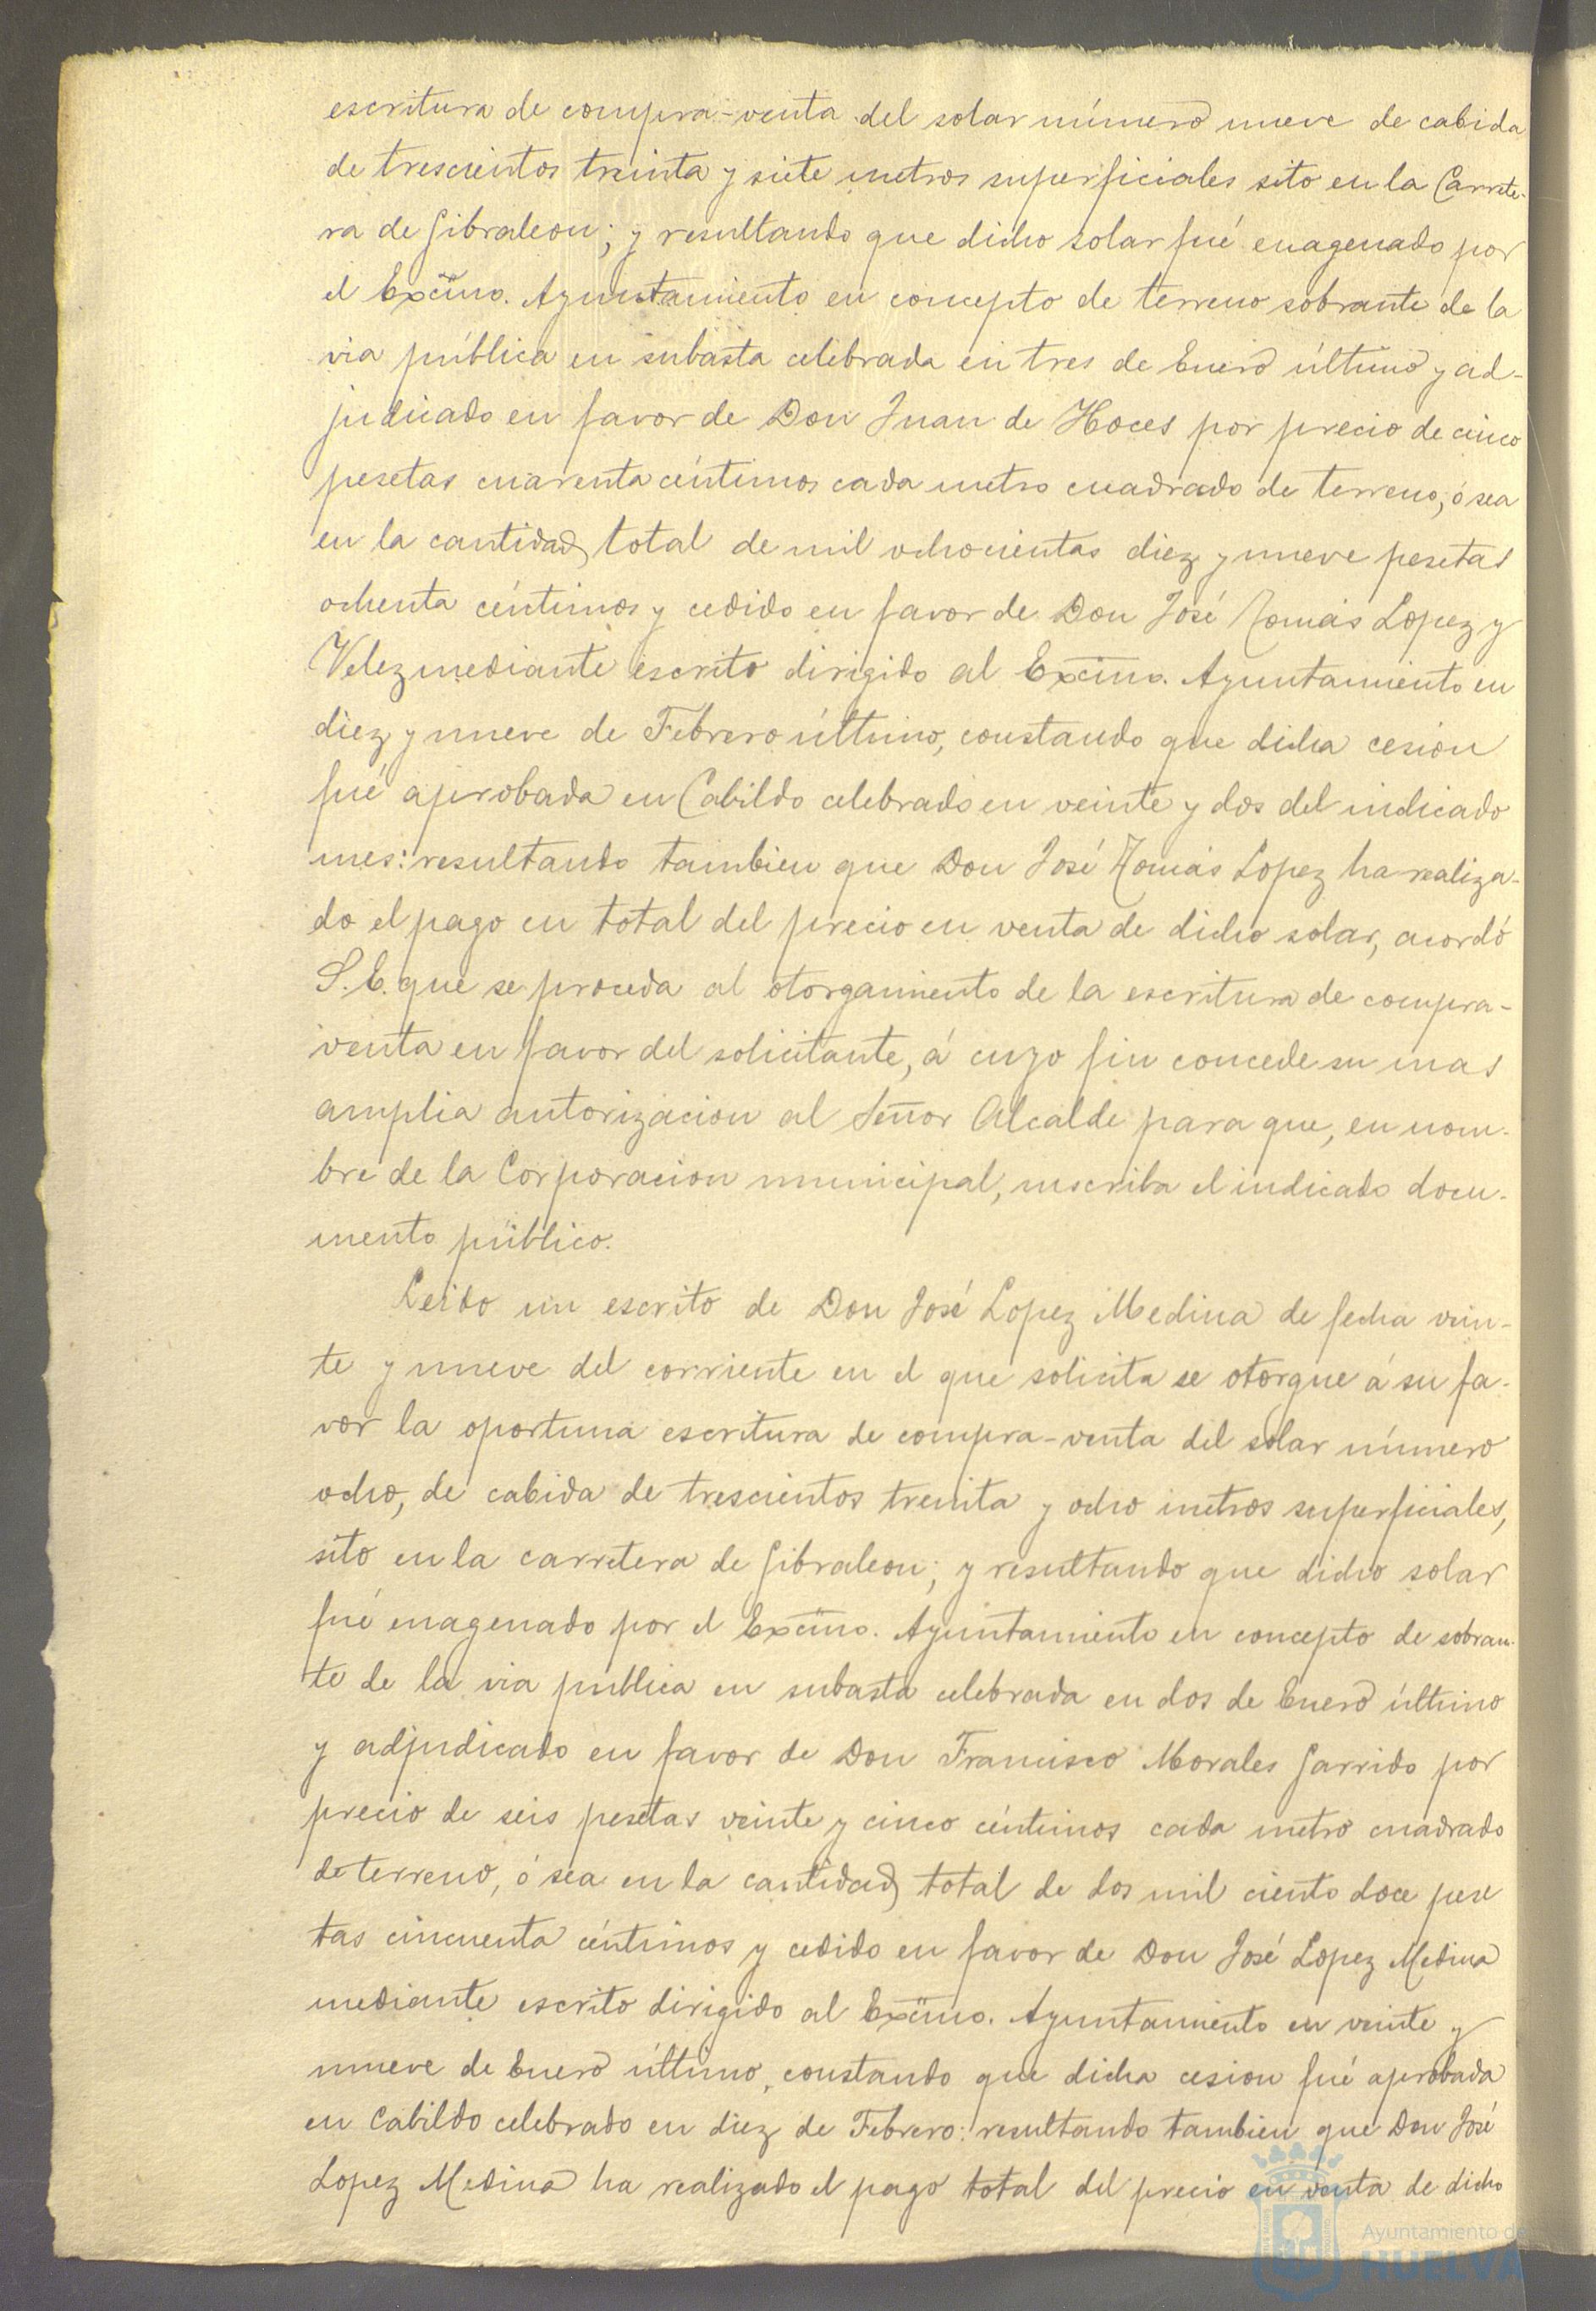 escritura de compra-venta del solar número nueve de cabida
de trescientos treinta y siete metros superficiales sito en la Carrete-
ra de Gibraleon; y resultando que dicho solar fué enagenado por
el Excmo. Ayuntamiento en concepto de terreno sobrante de la
via pública en subasta celebrada en tres de Enero último y ad-
judicado en favor de Don Juan de Hoces por precio de cinco
pesetas cuarenta céntimos cada metro cuadrado de terreno, ó sea
en la cantidad total de mil ochocientas diez y nueve pesetas
ochenta céntimos y cedido en favor de Don José Tomás Lopez y
Velez mediante escrito dirigido al Excmo. Ayuntamiento en
diez y nueve de Febrero último, constando que dicha cesion
fué aprobada en Cabildo celebrado en veinte y dos del indicado
mes: resultando tambien que Don José Tomás Lopez ha realiza-
do el pago en total del precio en venta de dicho solar, acordó
S.E. que se proceda al otorgamiento de la escritura de compra-
venta en favor del solicitante, á cuyo fin concede su mas
amplia autorizacion al Señor Alcalde para que, en nom-
bre de la Corporacion municipal, suscriba el indicado docu-
mento público.
Leido un escrito de Don José Lopez Medina de fecha vein-
te y nueve del corriente en el que solicita se otorgue á su fa-
vor la oportuna escritura de compra-venta del solar número
ocho, de cabida de trescientos treinta y ocho metros superficiales,
sito en la carretera de Gibraleon; y resultando que dicho solar
fué enagenado por el Excmo. Ayuntamiento en concepto de sobran-
te de la via publica en subasta celebrada en dos de Enero último
y adjudicado en favor de Don Francisco Morales Garrido por
precio de seis pesetas veinte y cinco céntimos cada metro cuadrado
de terreno, ó sea en la cantidad total de dos mil ciento doce pese
tas cincuenta céntimos y cedido en favor de Don José Lopez Medina
mediante escrito dirigido al Excmo. Ayuntamiento en veinte y
nueve de Enero último, constando que dicha cesion fué aprobada
en Cabildo celebrado en diez de Febrero: resultando tambien que Don José
Lopez Medina ha realizado el pago total del precio en venta de dicho
Ayuntamiento de
HUELVA